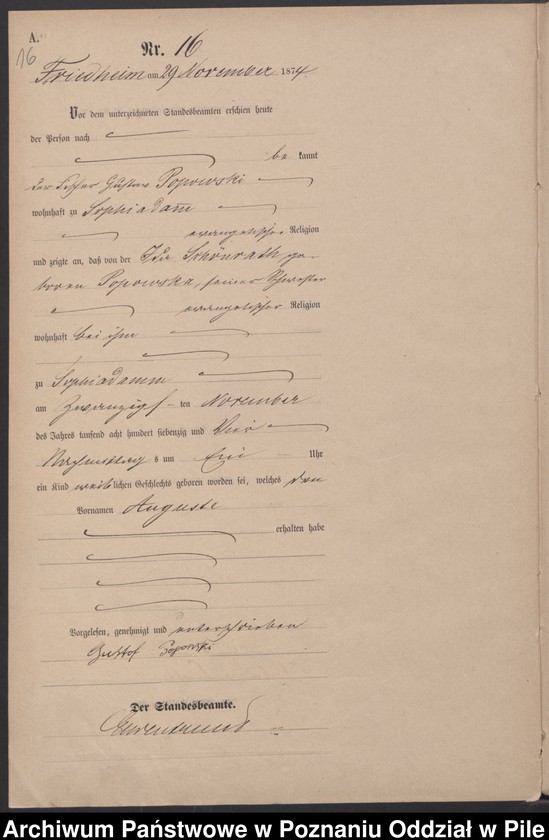 A.
16
Nr. 16
Friedheim am 29 November 1874.
Vor dem unterzeichneten Standesbeamten erschien heute
der Person nach
be kannt
der Gustav Popowski
wohnhaft zu Sophiadam̄
evangelischer Religion
und zeigte an, daß von der Ida Schönrath ge-
boren Popowska, seiner Schwester
evangelischer Religion
wohnhaft bei ihm
zu Sophiadamm
am Zwanzigs- ten November
des Jahres tausend acht hundert siebenzig und Vier
Nachmittag s um Uhr
ein Kind weiblichen Geschlechts geboren worden sei, welches den
Vornamen Auguste
erhalten habe
Vorgelesen, genehmigt und unterschrieben
Gustof Popowski
Der Standesbeamte.
Archiwum Państwowe w Poznaniu Oddział w Pile